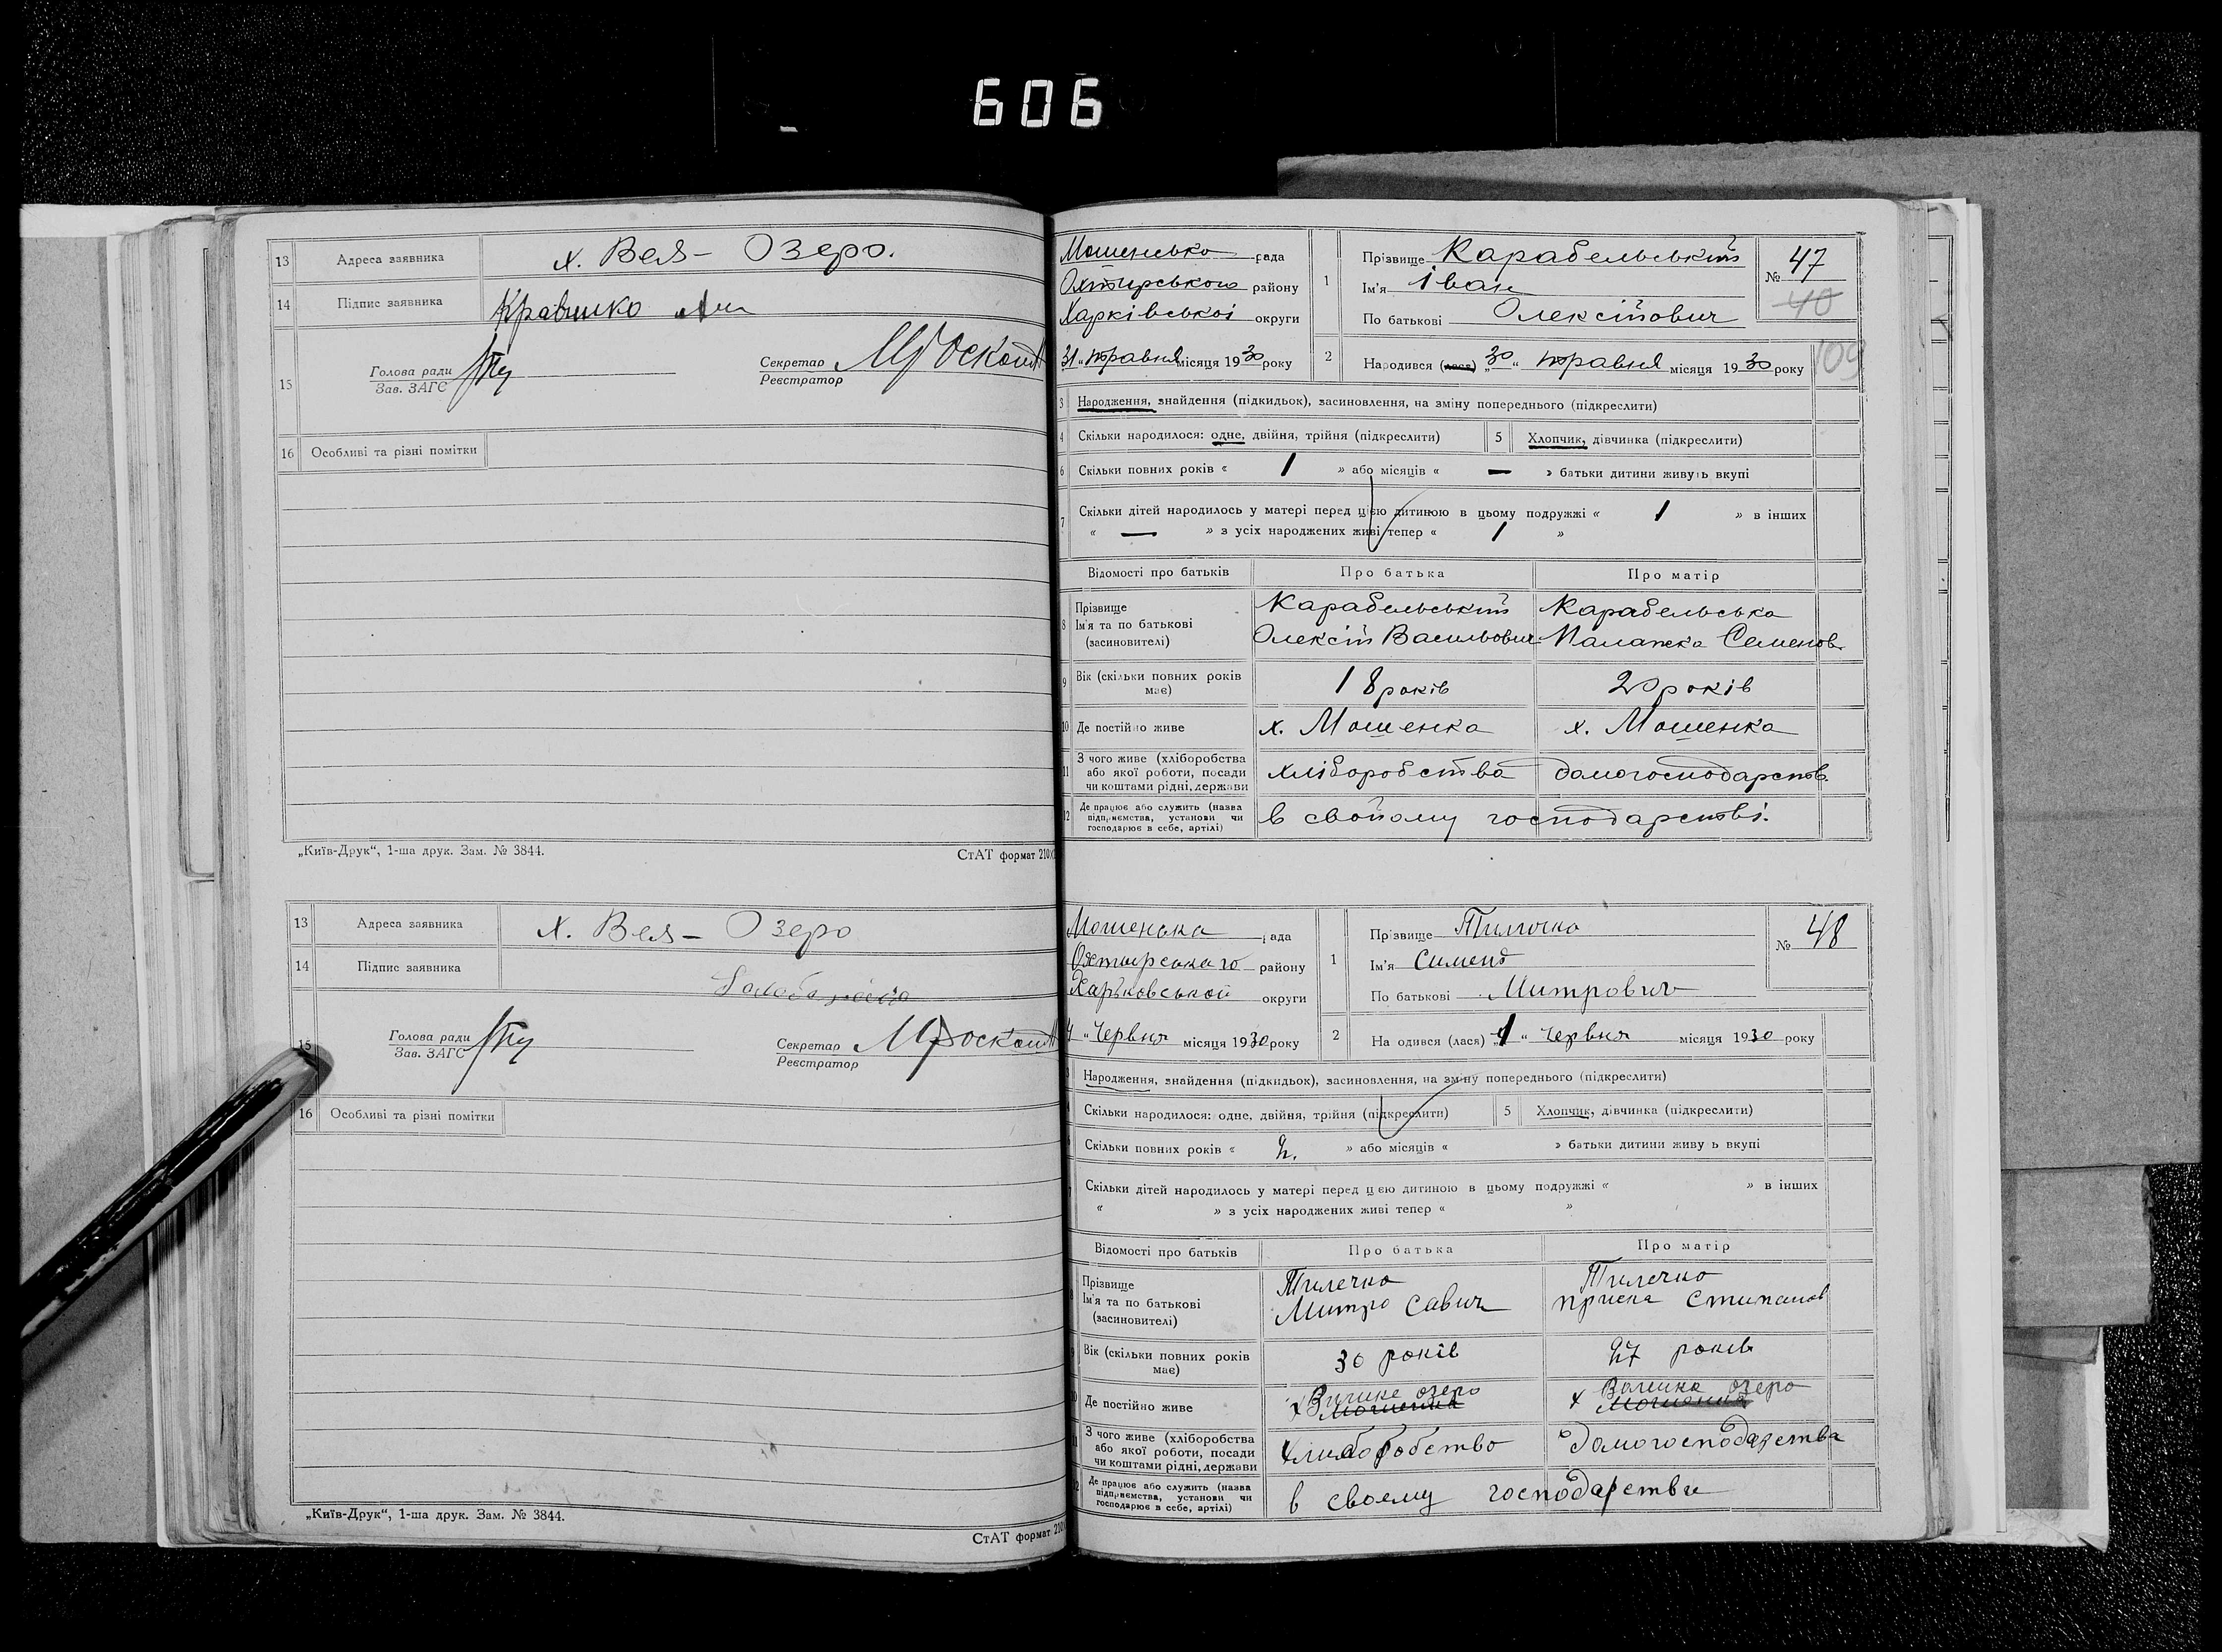 606
13 Адреса заявника х. Вел- Озеро.
14 Підпис заявника Кравченко
15 Голова ради Секретар
Зав. ЗАГС Реєстратор
16 Особливі та різні помітки
„Київ-Друк“, 1-ша друк. Зам. № 3844. СтАТ формат 210
13 Адреса заявника х. Вел- Озеро
14 Підпис заявника
15 Голова ради Секретар
Зав. ЗАГС Реєстратор
16 Особливі та різні помітки
„Київ-Друк“, 1-ша друк. Зам. № 3844.
СтАТ формат 210
Мошенсько рада
Охтирського району
Харківської округи
31 „ травня місяця 1930 року
1 Прізвище Карабельський
Ім'я Іван
По батькові Олексійович
№ 47
40
2 Народився (лася) „30“ травня місяця 1930 року
109
3 Народження, знайдення (підкидьок), засиновлення, на зміну попереднього (підкреслити)
4 Скільки народилося: одне, двійня, трійня (підкреслити) 5 Хлопчик, дівчинка (підкреслити)
6 Скільки повних років « 1 » або місяців « — » батьки дитини живуть вкупі
7 Скільки дітей народилось у матері перед цією дитиною в цьому подружжі « 1 » в інших
« — » з усіх народжених живі тепер « 1 »
Відомості про батьків Про батька Про матір
8 Прізвище Карабельський Карабельська
Ім'я та по батькові Олексій Васильович Палажка Семенов.
(засиновителі)
9 Вік (скільки повних років має) 18 років 20 років
10 Де постійно живе х. Мошенка х. Мошенка
11 З чого живе (хліборобства
або якої роботи, посади хліборобства домогосподарств.
чи коштами рідні, держави
12 Де працює або служить (назва
підприємства, установи чи в свойому господарстві.
господарює в себе, артілі)
Мошенська рада
Охтирського району
Харьковськой округи
4 „ Червня місяця 1930 року
1 Прізвище Тилечко
Ім'я Симено
По батькові Митрович
№ 48
2 На одився (лася) „1“ Червня місяця 1930 року
Народження, знайдення (підкидьок), засиновлення, на зміну попереднього (підкреслити)
Скільки народилося: одне, двійня, трійня (підкреслити) 5 Хлопчик, дівчинка (підкреслити)
Скільки повних років « 2. » або місяців « » батьки дитини живу ь вкупі
Скільки дітей народилось у матері перед цією дитиною в цьому подружжі « » в інших
« » з усіх народжених живі тепер « »
Відомості про батьків Про батька Про матір
Прізвище Тилечко Тилечко
Ім'я та по батькові Митро Савич приска Стипанов
(засиновителі)
Вік (скільки повних років має) 30 років 27 років
Де постійно живе х Вилике озеро х Велике озеро
Мошенка Мошенка
З чого живе (хліборобства
або якої роботи, посади хлиборобство Домогосподарства
чи коштами рідні, держави
Де працює або служить (назва
підприємства, установи чи в своєму господарстви
господарює в себе, артілі)